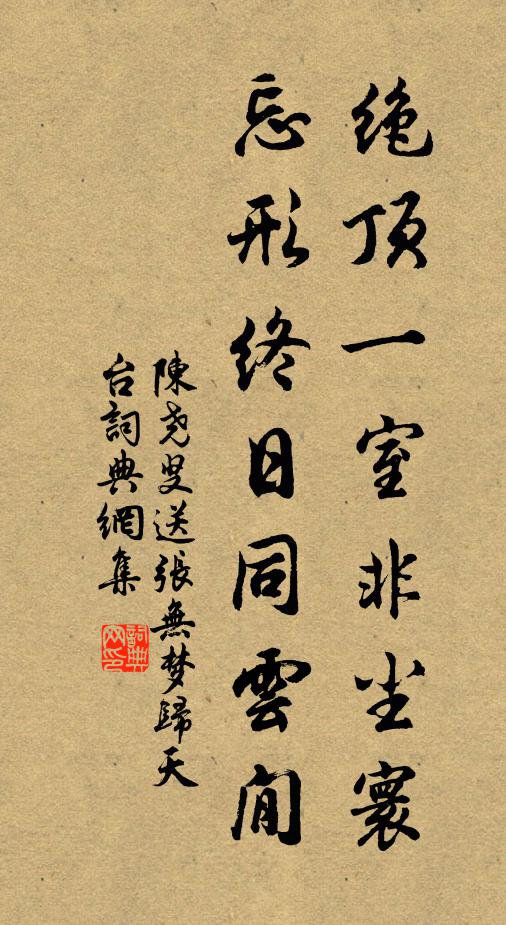 绝顶一室非尘寰
忘形终日同雲闲
陳尧叟送張無梦歸天
台詞典網集
詞典网印